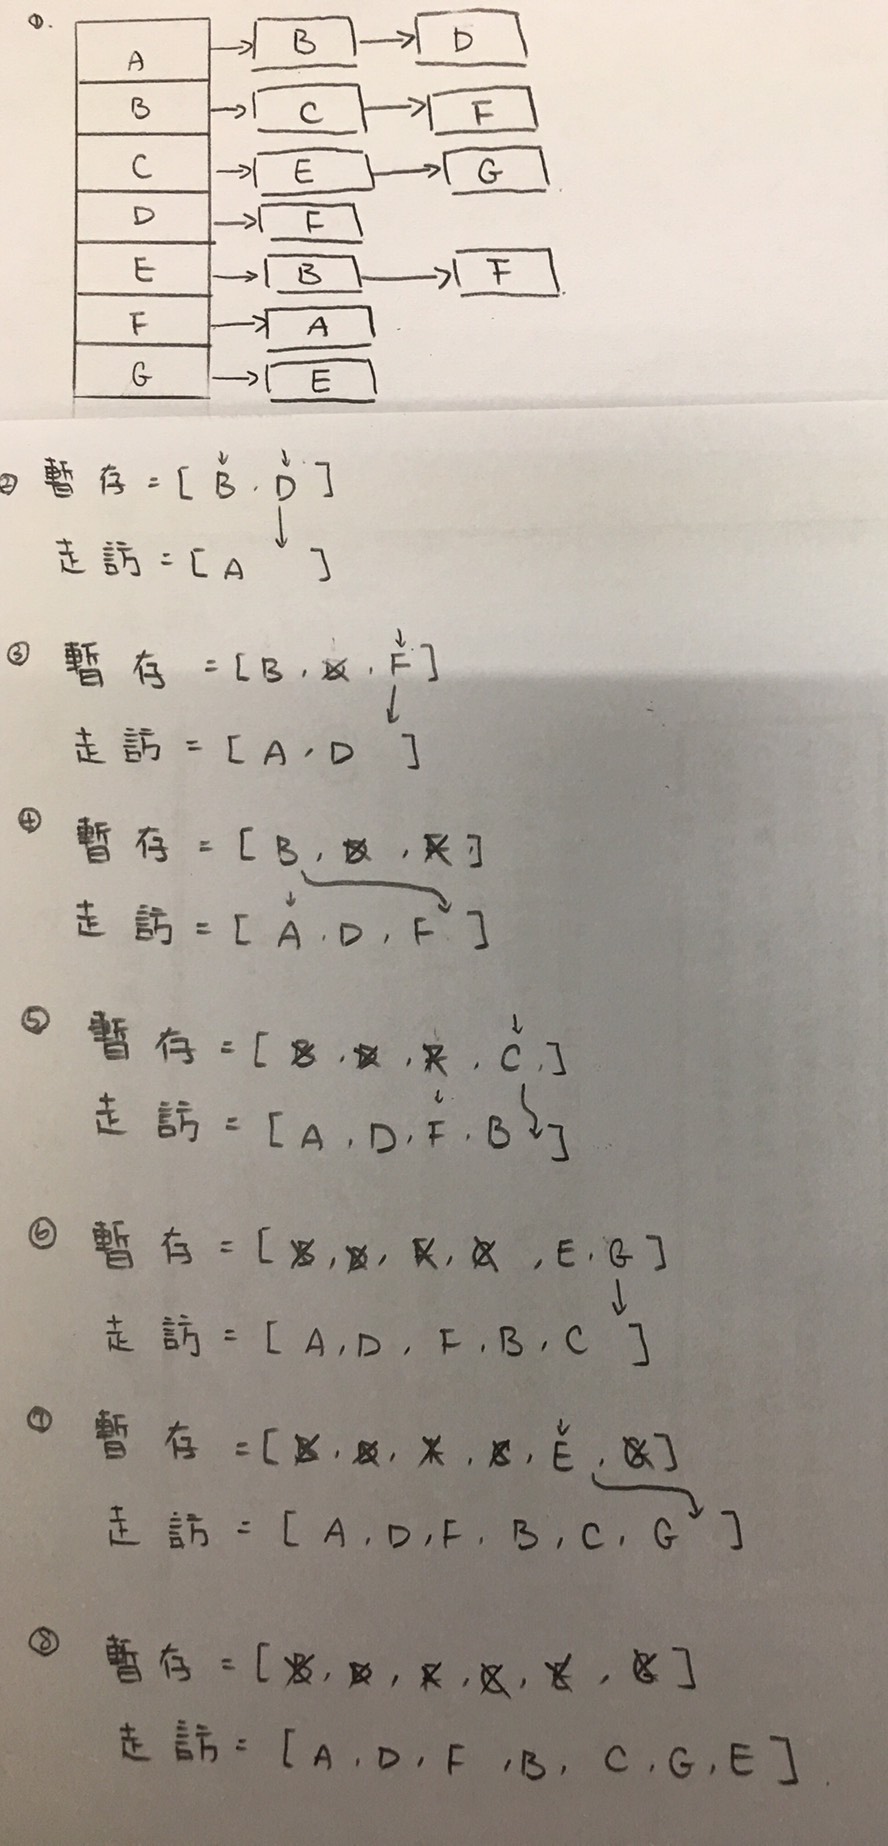 ①.
A → B → D
B → C → F
C → E → G
D → F
E → B → F
F → A
G → E
② 暫存 = [ B . D ]
走訪 = [ A ]
③ 暫存 = [ B , D , F ]
走訪 = [ A , D ]
④ 暫存 = [ B , D , F ]
走訪 = [ A . D , F ]
⑤ 暫存 = [ B , D , F , C , ]
走訪 = [ A , D , F , B ]
⑥ 暫存 = [ B , D , F , C , E , G ]
走訪 = [ A , D , F , B , C ]
⑦ 暫存 = [ B , D , F , C , E , G ]
走訪 = [ A , D , F , B , C , G ]
⑧ 暫存 = [ B , D , F , C , E , G ]
走訪 = [ A , D , F , B , C , G , E ]